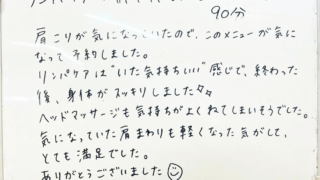 90分
肩こりが気になっていたので、このメニューが気に
なって予約しました。
リンパケアは"いた気持ちいい"感じで、終わった
後、身体がスッキリしました✨
ヘッドマッサージも気持ちがよくねてしまいそうでした。
気になっていた肩まわりも軽くなった気がして、
とても満足でした。
ありがとうございました☺